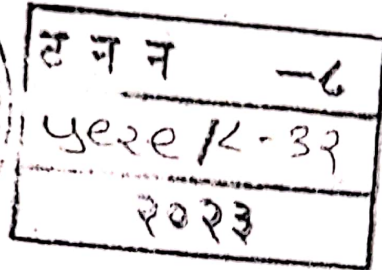 ट न न -८
५९२९ / ८ - ३२
२०२३